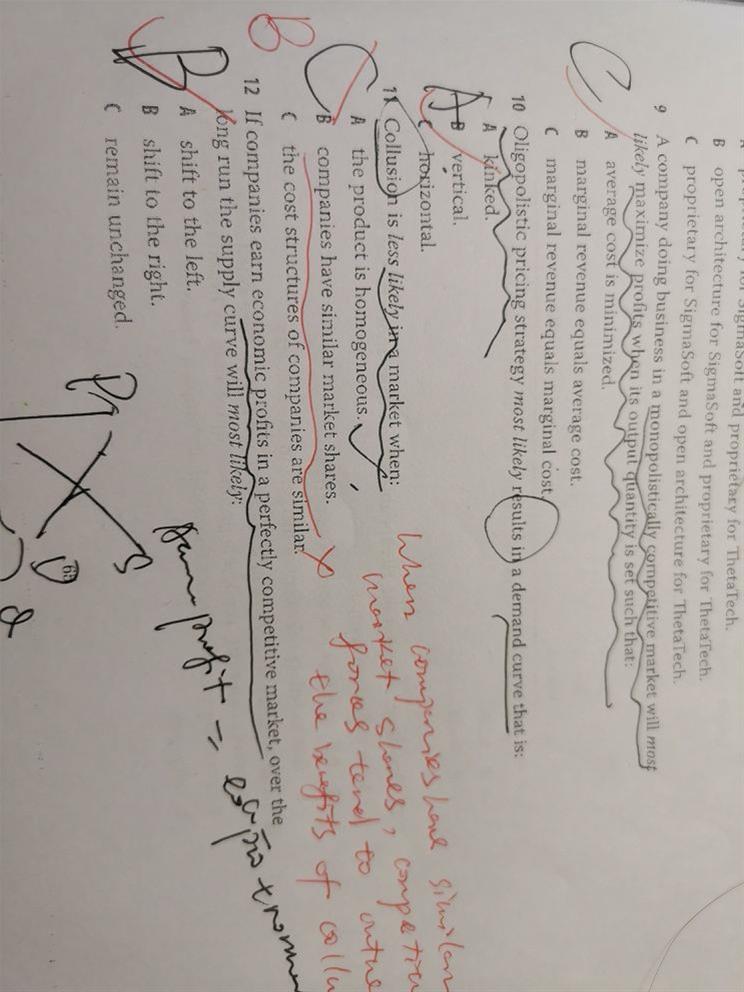 A proprietary for SigmaSoft and proprietary for ThetaTech.
B open architecture for SigmaSoft and proprietary for ThetaTech.
C proprietary for SigmaSoft and open architecture for ThetaTech.
9 A company doing business in a monopolistically competitive market will most
likely maximize profits when its output quantity is set such that:
C
A average cost is minimized.
B marginal revenue equals average cost.
C marginal revenue equals marginal cost.
10 Oligopolistic pricing strategy most likely results in a demand curve that is:
A
A kinked.
B vertical.
C horizontal.
11 Collusion is less likely in a market when:
B C
A the product is homogeneous.
B companies have similar market shares.
C the cost structures of companies are similar.
When companies have similar
market shares, competitive
forces tend to
the benefits of
12 If companies earn economic profits in a perfectly competitive market, over the
long run the supply curve will most likely:
B
A shift to the left.
B shift to the right.
C remain unchanged.
profit =
S
D